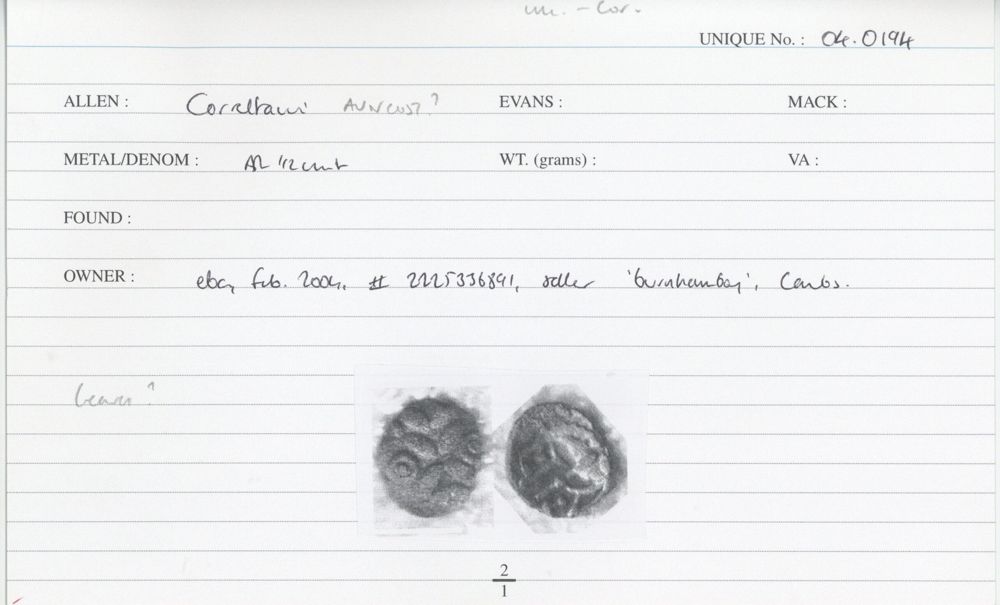 un. - Cor.
UNIQUE No. : 04.0194
ALLEN : Correltavi AVN COST? EVANS : MACK :
METAL/DENOM : AR 1/2 unit WT. (grams) : VA :
FOUND :
OWNER : ebay Feb. 2004, # 2225336891, seller 'burnhamboy', Cambs.
2
1